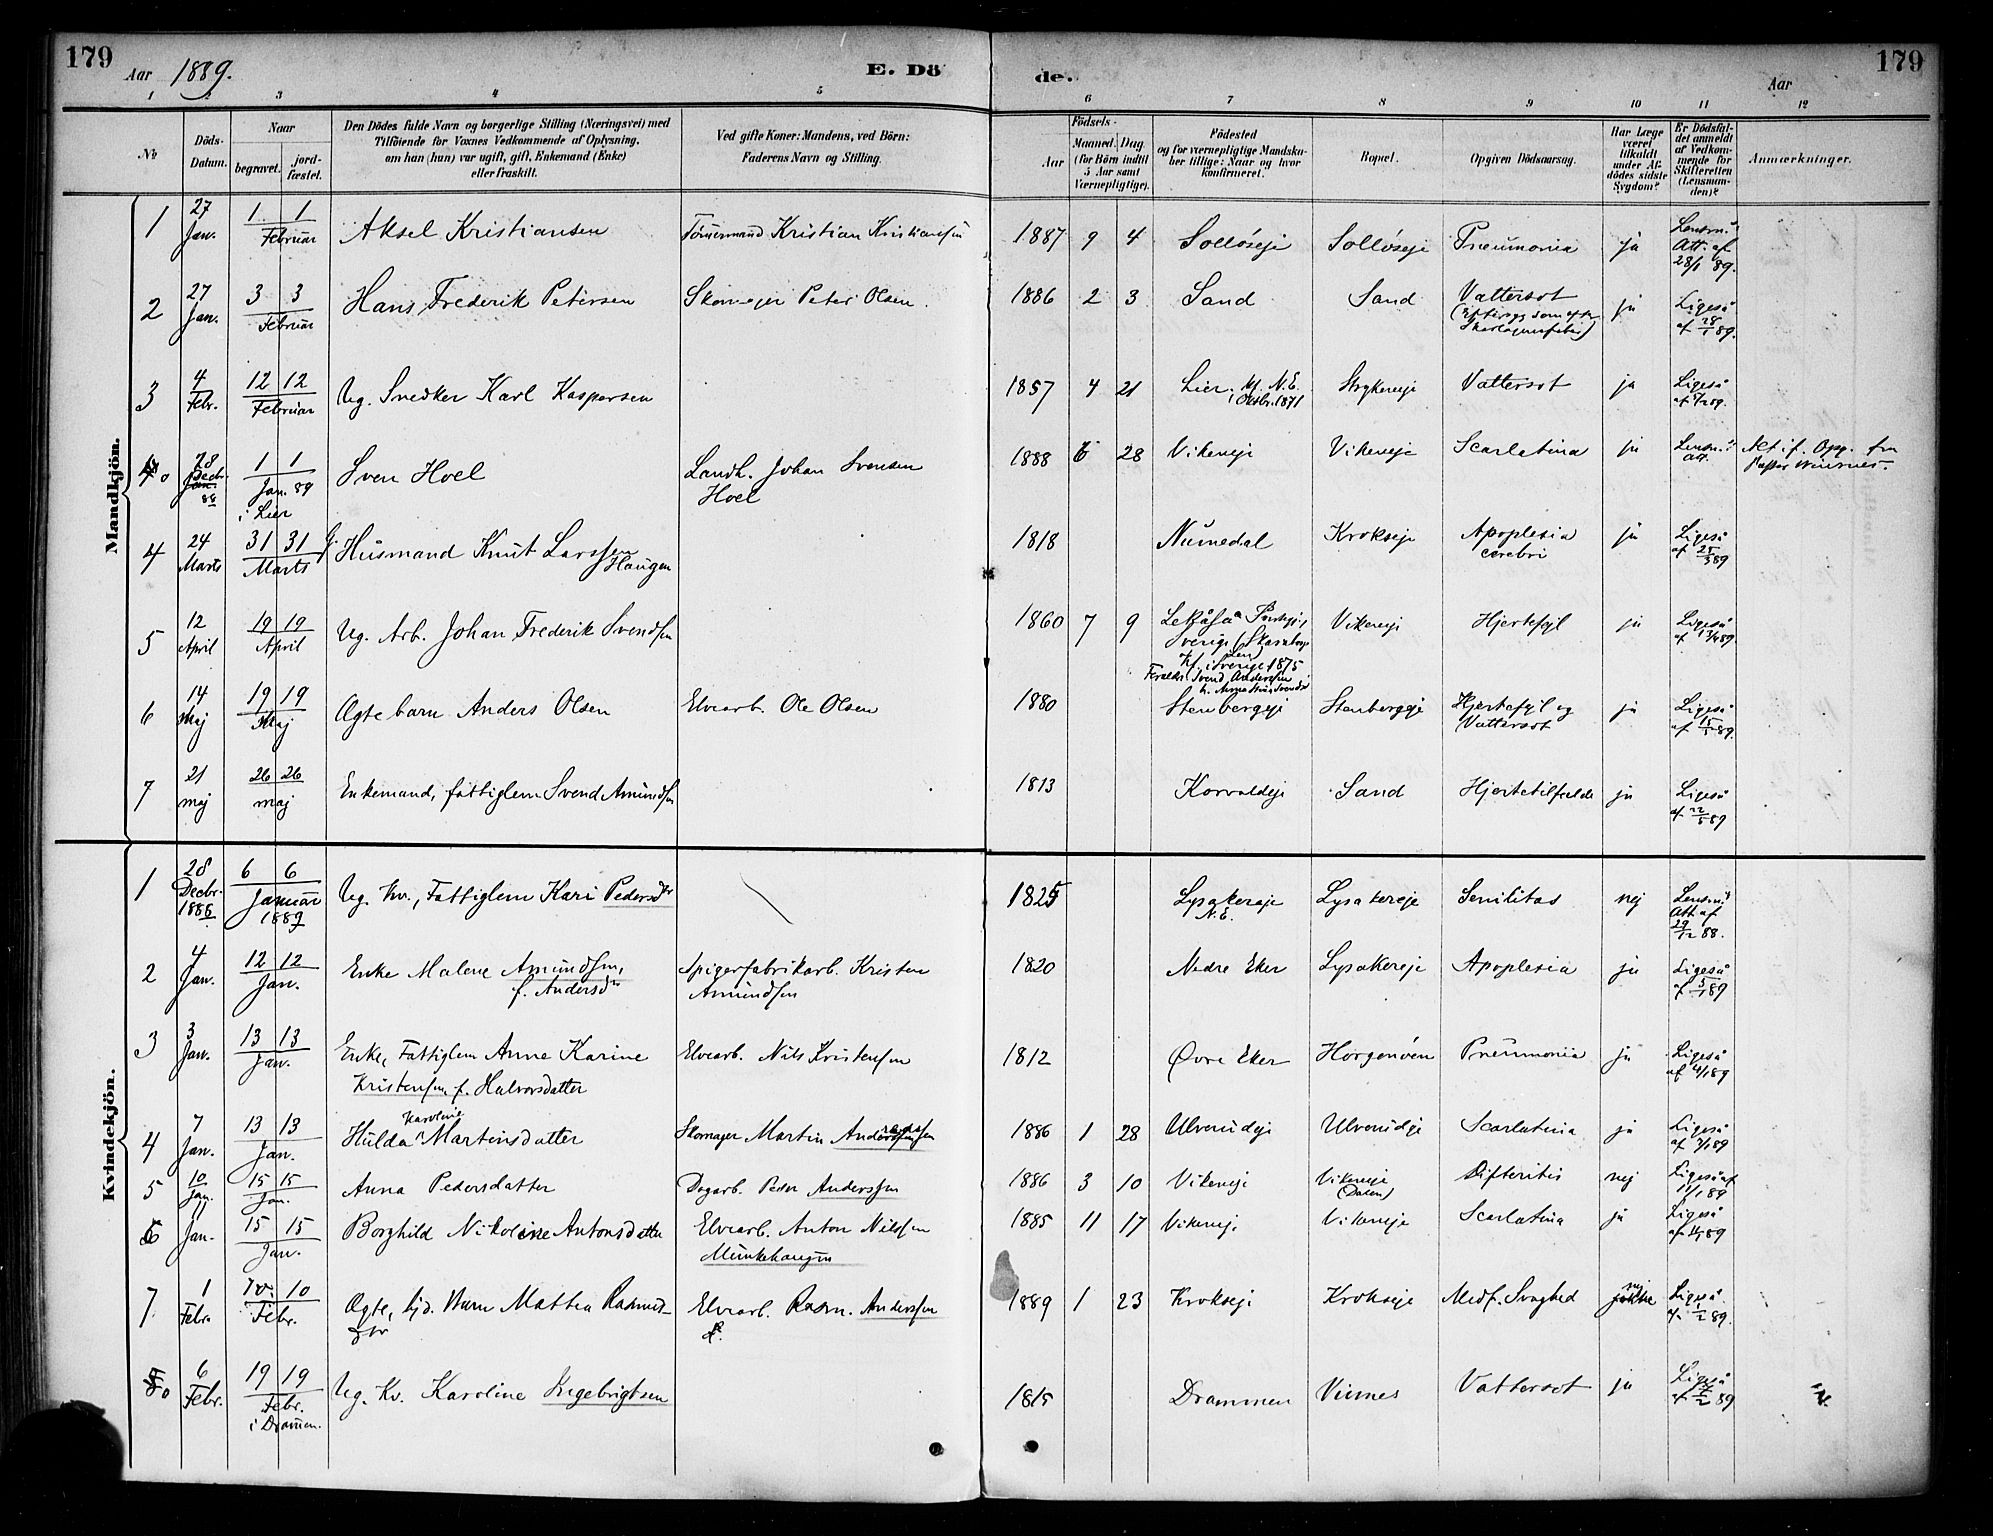 179
Aar 1889.
E. Dö
de.
Aar
179
1 2 3 4 5 6 7 8 9 10 11 12
№
Döds-Datum.
Naar
begravet.
jordfæstet.
Den Dödes fulde Navn og borgerlige Stilling (Næringsvei) med
Tilföiende for Voxnes Vedkommende af Oplysning,
om han (hun) var ugift, gift, Enkemand (Enke)
eller fraskilt.
Ved gifte Koner: Mandens, ved Börn:
Faderens Navn og Stilling.
Födsels-
Aar
Maaned. Dag.
(for Börn indtil
5 Aar samt
Værnepligtige).
Födested
og for værnepligtige Mandskaber
tillige: Naar og hvor
konfirmeret.
Bopæl.
Opgiven Dödsaarsag.
Har Læge
været
tilkaldt
under Afdödes
sidste
Sygdom?
Er Dödsfaldet
anmeldt
af Vedkommende
for
Skifteretten
(Lensmanden)?
Anmærkninger.
Mandkjön.
1 27 Jan. 1 1 Februar Aksel Kristiansen Tömmermand Kristian Kristiansen 1887 9 4 Sollöseje Sollöseje Pneumonia ja Lensm. Att. af 28/1 89.
2 27 Jan. 3 3 Februar Hans Frederik Petersen Skomager Peter Olsen 1886 2 3 Sand Sand Vattersot ja Ligeså af 28/1 89.
3 4 Febr. 12 12 Februar Ug. Snedker Karl Kaspersen 1857 4 21 Lier, kf. N.E. Oktbr. 1871 Strykereje Vattersot ja Ligeså af 5/2 89.
0 28 Decbr. 88 1 1 Jan. 89 i Lier Sven Hoel Landh. Johan Svensen Hoel 1888 6 28 Vikereje Vikereje Scarlatina ja Lensm. Att. Opg. fra Pastor
4 24 Marts 31 31 Marts G. Husmand Knut Larssen Haugen 1818 Numedal Krokseje Apoplexia cerebri ja Ligeså af 25/3 89
5 12 April 19 19 April Ug. Arb. Johan Frederik Svendsen 1860 7 9 Sverige (Skaraborgs Len) Kf. i Sverige 1875 Vikereje Hjertefejl ja Ligeså af 13/4 89
Foreldre Svend Andersen
6 14 Maj 19 19 Maj Ægte barn Anders Olsen Elvearb. Ole Olsen 1880 Stenbergeje Stenbergeje Hjertefejl og Vattersot ja Ligeså af 15/5 89.
7 21 maj 26 26 maj Enkemand, fattiglem Svend Amundsen 1813 Korvaldeje Sand Hjertetilfælde ja Ligeså af 22/5 89
Kvindekjön.
1 28 Decbr. 1888 6 6 Januar 1889 Ug. kv., Fattiglem Kari Pedersdtr 1825 Lysakereje N.E. Lysakereje Senilitas nej Lensm. Att. af 29/12 88.
2 4 Jan. 12 12 Jan. Enke Malene Amundsen, f. Andersdtr Spigerfabrikarb. Kristen Amundsen 1820 Nedre Eker Lysakereje Apoplexia ja Ligeså af 5/1 89
3 3 Jan. 13 13 Jan. Enke, Fattiglem Anne Karine Kristensen f. Halvorsdatter Elvearb. Nils Kristensen 1812 Øvre Eker Horgenöen Pneumonia ja Ligeså af 4/1 89
4 7 Jan. 13 13 Jan. Hulda Karoline Martinsdatter Skomager Martin Anderssen 1886 1 28 Ulverudeje Ulverudeje Scarlatina ja Ligeså af 7/1 89
5 10 Jan. 15 15 Jan. Anna Pedersdatter Dagarb. Peder Anderssen 1886 3 10 Vikereje Vikereje (Dalen) Difteritis nej Ligeså af 11/1 89
6 11 Jan. 15 15 Jan. Borghild Nikoline Antonsdatter Elvearb. Anton Nilssen Munkehaugen 1885 11 17 Vikereje Vikereje Scarlatina ja Ligeså af 89
7 1 Febr. 10 10 Febr. Ægte, hjd. Barn Mathea Rasmusdtr Elvearb. Rasm. Anderssen 1889 1 23 Krokseje Krokseje Medf. Svaghed nej Ligeså af 1/2 89.
8 0 6 Febr. 19 19 Febr. i Drammen. Ug. Kv. Karoline Ingebrigtsen 1815 Drammen Vinnes Vattersot ja Ligeså af 7/2 89